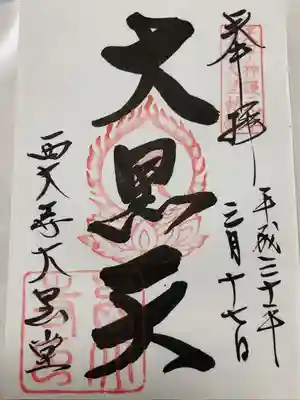 奉拝
平成三十年
三月十七日
大黒天
西大寺大黒堂